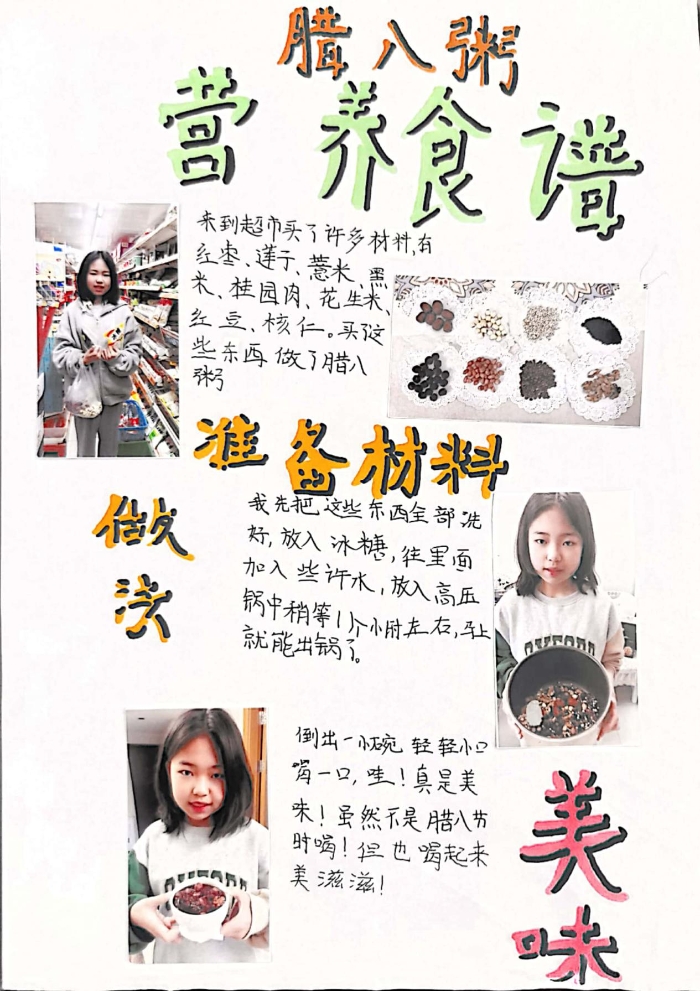 腊八粥
营养食谱
来到超市买了许多材料,有
红枣、莲子、薏米、黑
米、桂园肉、花生米、
红豆、核仁。买这
些东西做了腊八
粥
准备材料
做法
我先把这些东西全部洗
好,放入冰糖,往里面
加入些许水,放入高压
锅中稍等1个小时左右,马上
就能出锅了。
倒出一小碗轻轻小口
喝一口,哇!真是美
味!虽然不是腊八节
时喝!但也喝起来
美滋滋!
美味